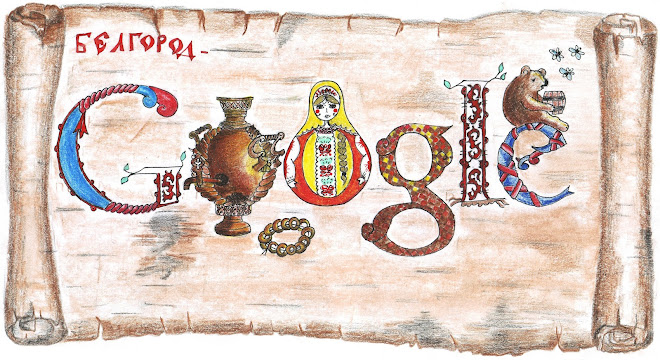 БЕЛГОРОД-
Google